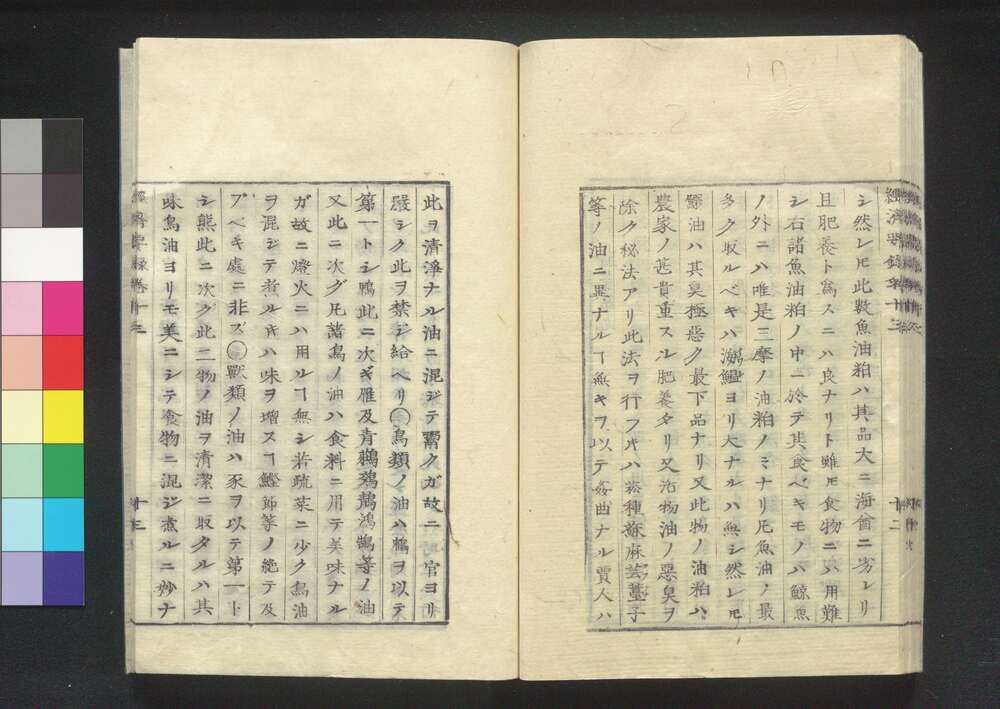 經濟要錄卷十三
シ然レ𪜈此數魚油粕ハ其品大ニ海鰌ニ劣レリ
且肥養ト爲スニハ良ナリト雖𪜈食物ニハ用難
シ石諸魚油粕ノ中ニ於テ其食ベキモノハ鯨魚
ノ外ニハ唯是三摩ノ油粕ノミナリ凡魚油ノ最
多ク取ルベキハ海鰮ヨリ大ナルハ無シ然レ𪜈
油ハ其臭極惡ク最下品ナリ又此物ノ油粕ハ
農家ノ甚貴重スル肥養タリ又治物油ノ惡臭ヲ
除ク秘法アリ此法ヲ行フ𪜈ハ菘種蘇麻芸薹子
等ノ油ニ異ナルヿ無キヲ以テ姦曲ナル賈人ハ
十二
此ヲ清淨ナル油ニ混ジテ鬻クガ故ニ 官ヨリ
嚴シク此ヲ禁ジ給ヘリ○鳥類ノ油ハ鶴ヲ以テ
第一トシ鴨此ニ次ギ雁及青鷄鴻鵠等ノ油
又此ニ次グ凡諸鳥ノ油ハ食料ニ用テ美味ナル
ガ故ニ燈火ニハ用ルヿ無シ若疏菜ニ少ク鳥油
ヲ混ジテ煮ル𪜈ハ味ヲ增スヿ鰹節等ノ絶テ及
ブベキ處ニ非ズ○獸類ノ油ハ豕ヲ以テ第一ト
シ熊此ニ次グ此二物ノ油ヲ清潔ニ取タルハ其
味鳥油ヨリモ美ニシテ食物ニ混ジ煮ルニ妙ナ
十三